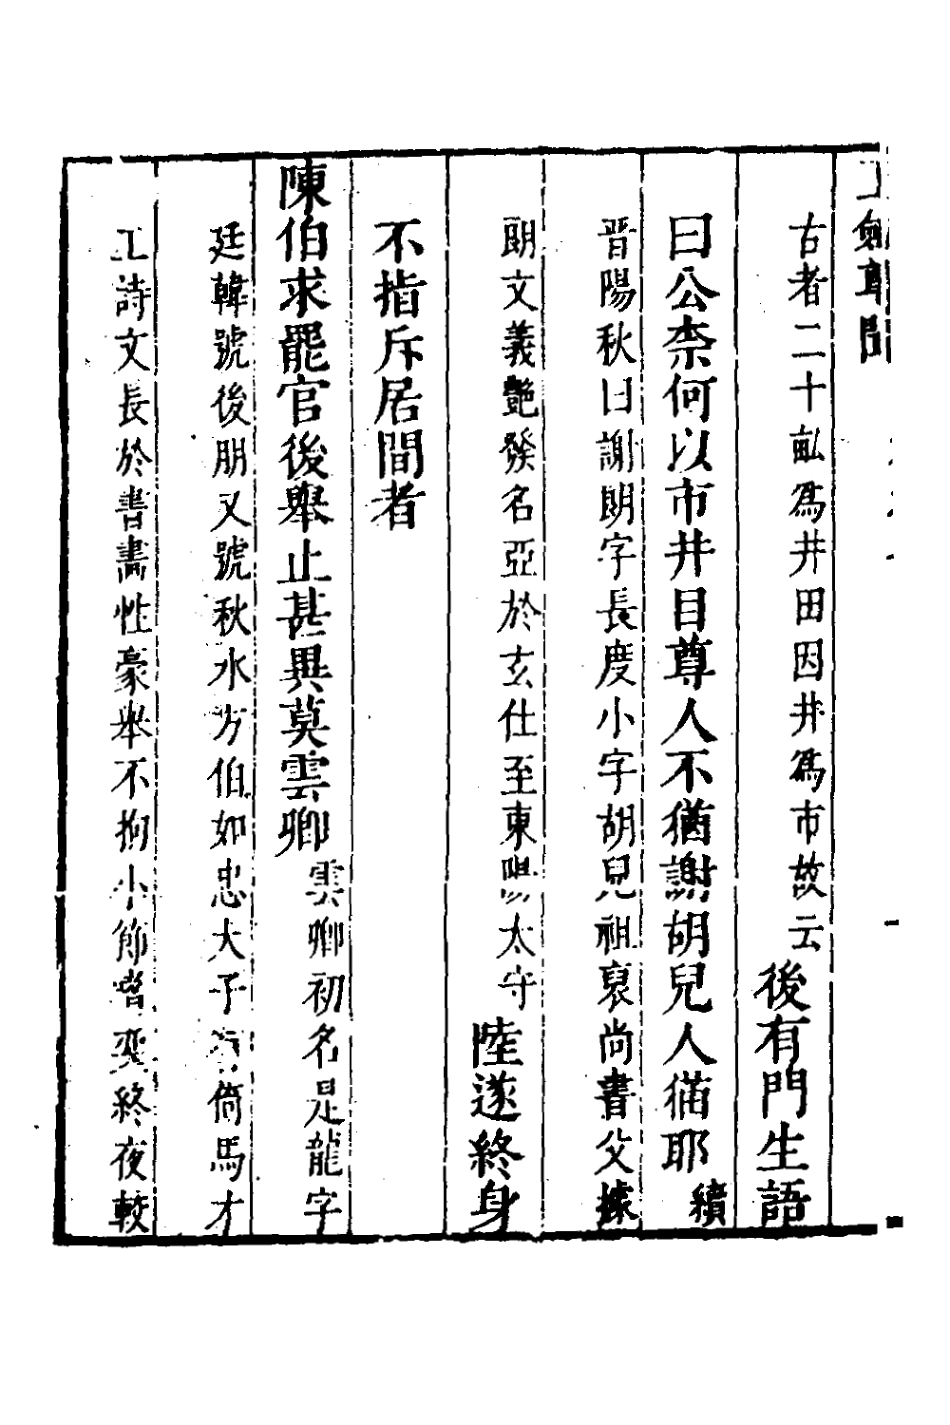 古者二十畝為井田因井為市故云後有門生語
曰公柰何以市井目尊人不猶謝胡兒人猶耶續
晋陽秋曰謝朗字長度小字胡兒祖裒尚書父據
朗文義艶發名亞於玄仕至東陽太守陸遂終身
不指斥居間者
陳伯求罷官後舉止甚異莫雲卿雲卿初名是龍字
廷韓號後朋又號秋水方伯如忠大子有倚馬才
工詩文長於書畵性豪舉不拘小節嘗奕終夜較